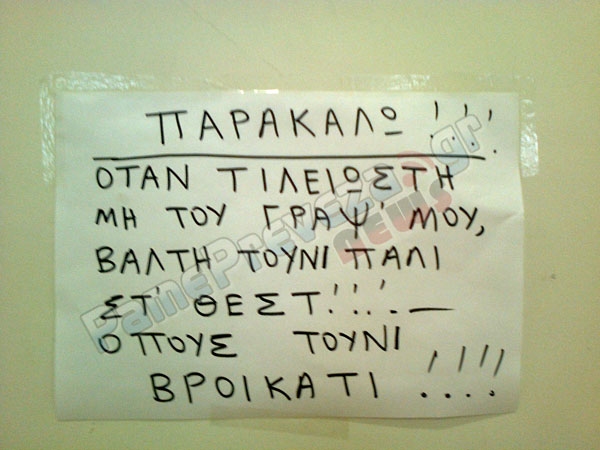 ΠΑΡΑΚΑΛΩ !!!
ΟΤΑΝ ΤΙΛΕΙΩΣΤΗ
ΜΗ ΤΟΥ ΓΡΑΨ' ΜΟΥ,
ΒΑΛΤΗ ΤΟΥΝΙ ΠΑΛΙ
ΣΤ' ΘΕΣΤ!!!.—
ΟΠΟΥΣ ΤΟΥΝΙ
ΒΡΟΙΚΑΤΙ !!!!
PamePreveza.gr
NEWS